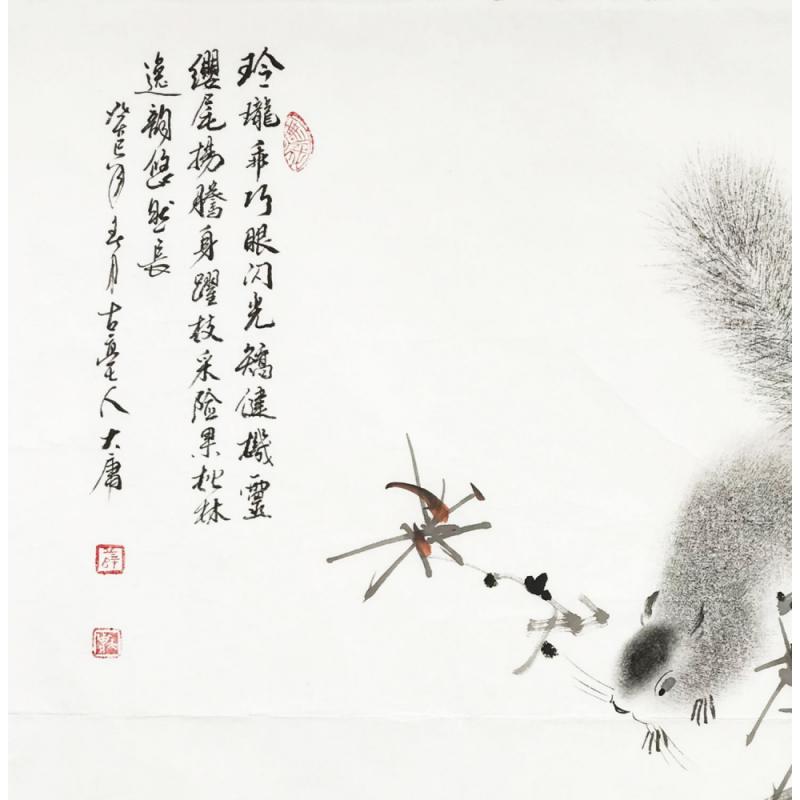 玲瓏乖巧眼闪光矯健機靈
纓尾揚騰身躍枝采险果松林
逸韵悠然長
癸巳年春月古亳人大庸